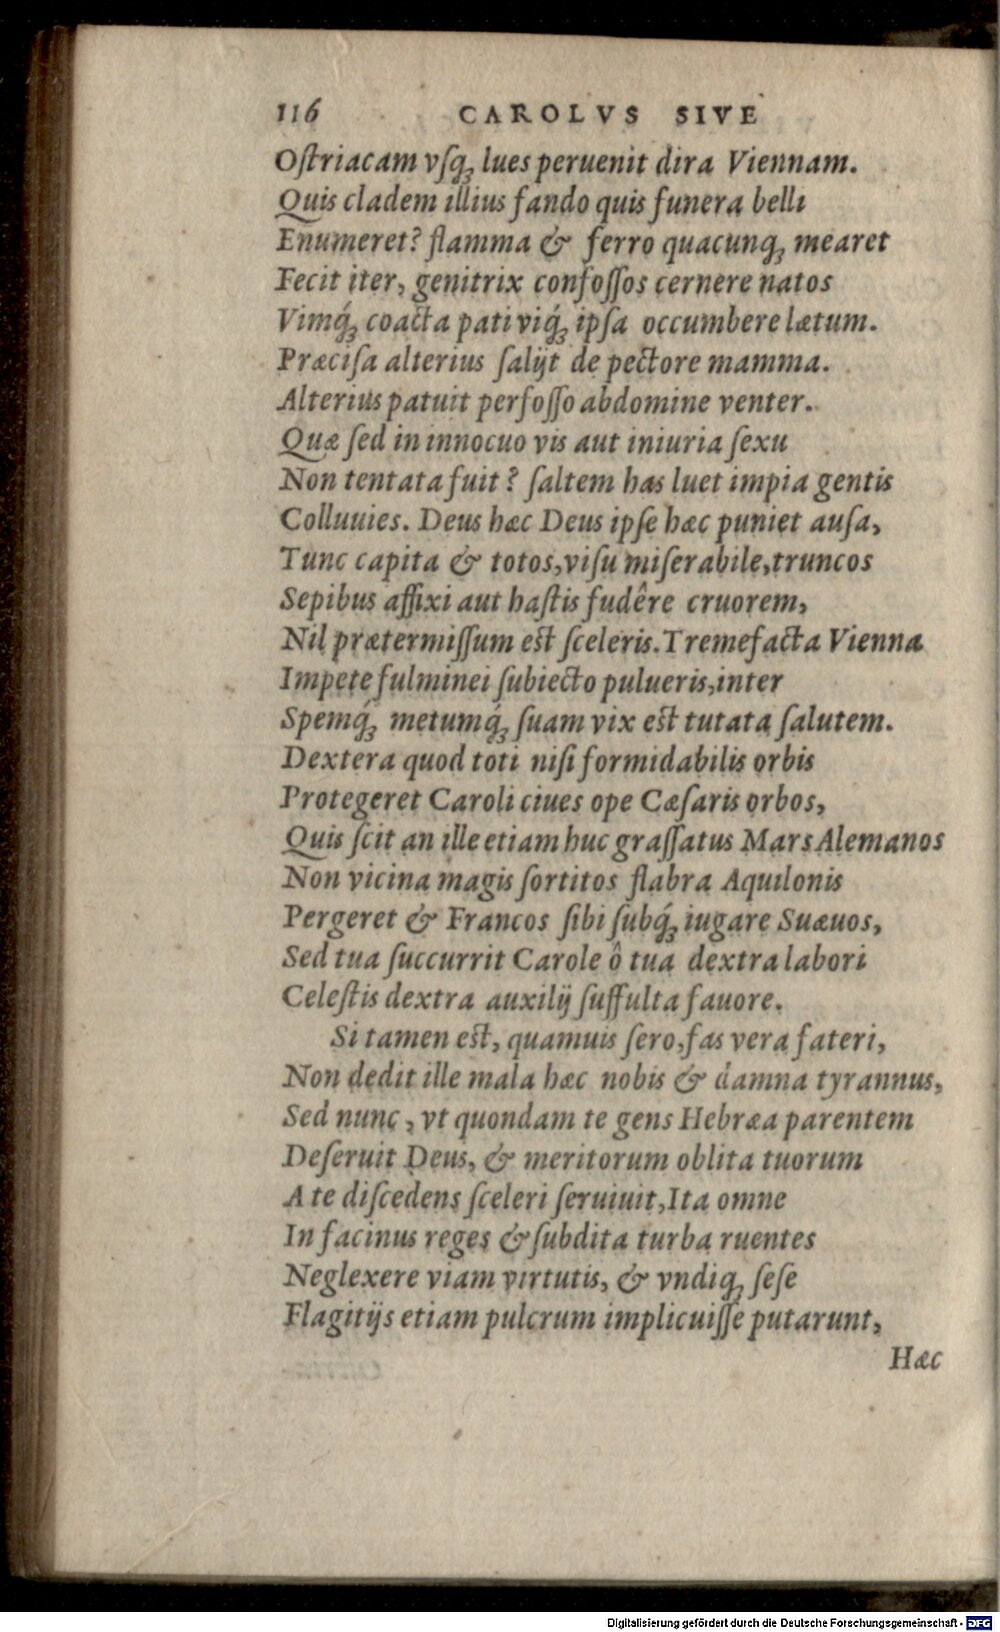 116 CAROLVS SIVE
Oſtriacam vſq; lues peruenit dira Viennam.
Quis cladem illius fando quis funera belli
Enumeret? flamma & ferro quacunq; mearet
Fecit iter, genitrix confoſſos cernere natos
Vimq́; coacta pati viq́; ipſa occumbere lætum.
Præciſa alterius ſalijt de pectore mamma.
Alterius patuit perfoſſo abdomine venter.
Quæ ſed in innocuo vis aut iniuria ſexu
Non tentata fuit? ſaltem has luet impia gentis
Colluuies. Deus hæc Deus ipſe hæc puniet auſa,
Tunc capita & totos, viſu miſerabile, truncos
Sepibus affixi aut haſtis fudêre cruorem,
Nil prætermiſſum eſt ſceleris. Tremefacta Vienna
Impete fulminei ſubiecto pulueris, inter
Spemq́; metumq́; ſuam vix eſt tutata ſalutem.
Dextera quod toti niſi formidabilis orbis
Protegeret Caroli ciues ope Cæſaris orbos,
Quis ſcit an ille etiam huc graſſatus Mars Alemanos
Non vicina magis ſortitos flabra Aquilonis
Pergeret & Francos ſibi ſubq́; iugare Suæuos,
Sed tua ſuccurrit Carole ô tua dextra labori
Celeſtis dextra auxilij ſuffulta fauore.
Si tamen eſt, quamuis ſero, fas vera fateri,
Non dedit ille mala hæc nobis & damna tyrannus,
Sed nunc, vt quondam te gens Hebræa parentem
Deſeruit Deus, & meritorum oblita tuorum
A te diſcedens ſceleri ſeruiuit, Ita omne
In facinus reges & ſubdita turba ruentes
Neglexere viam virtutis, & vndiq; ſeſe
Flagitijs etiam pulcrum implicuiſſe putarunt,
Hæc
Digitalisierung gefördert durch die Deutsche Forschungsgemeinschaft - DFG